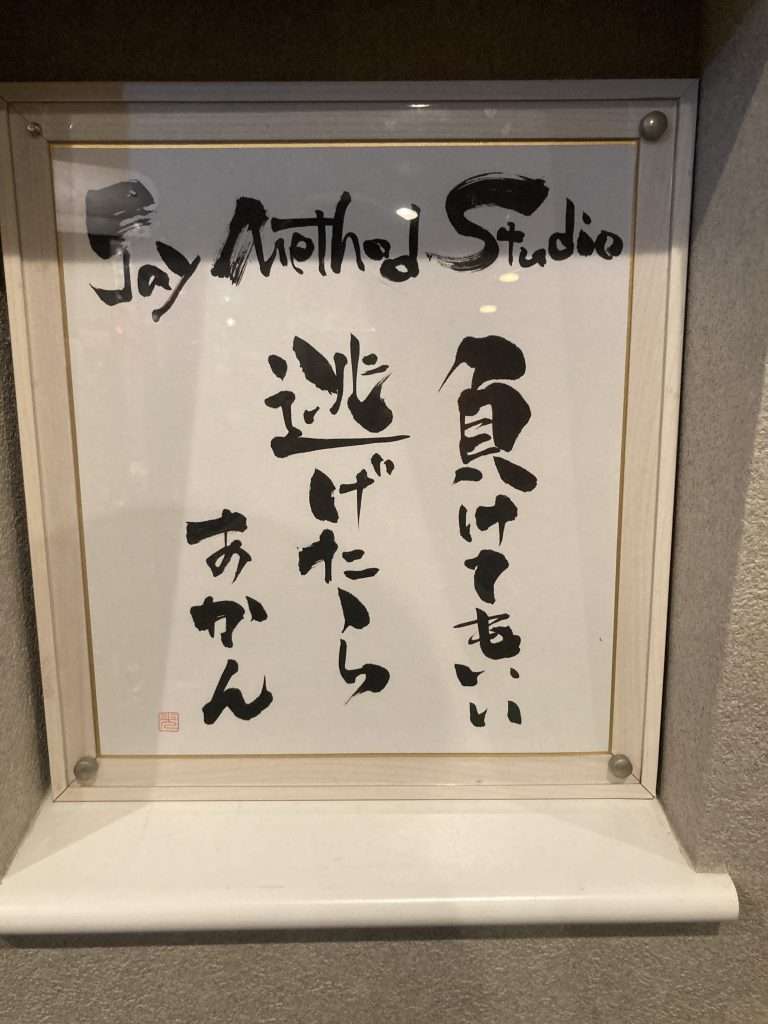 Jay Method Studio
負けてもいい
逃げたら
あかん